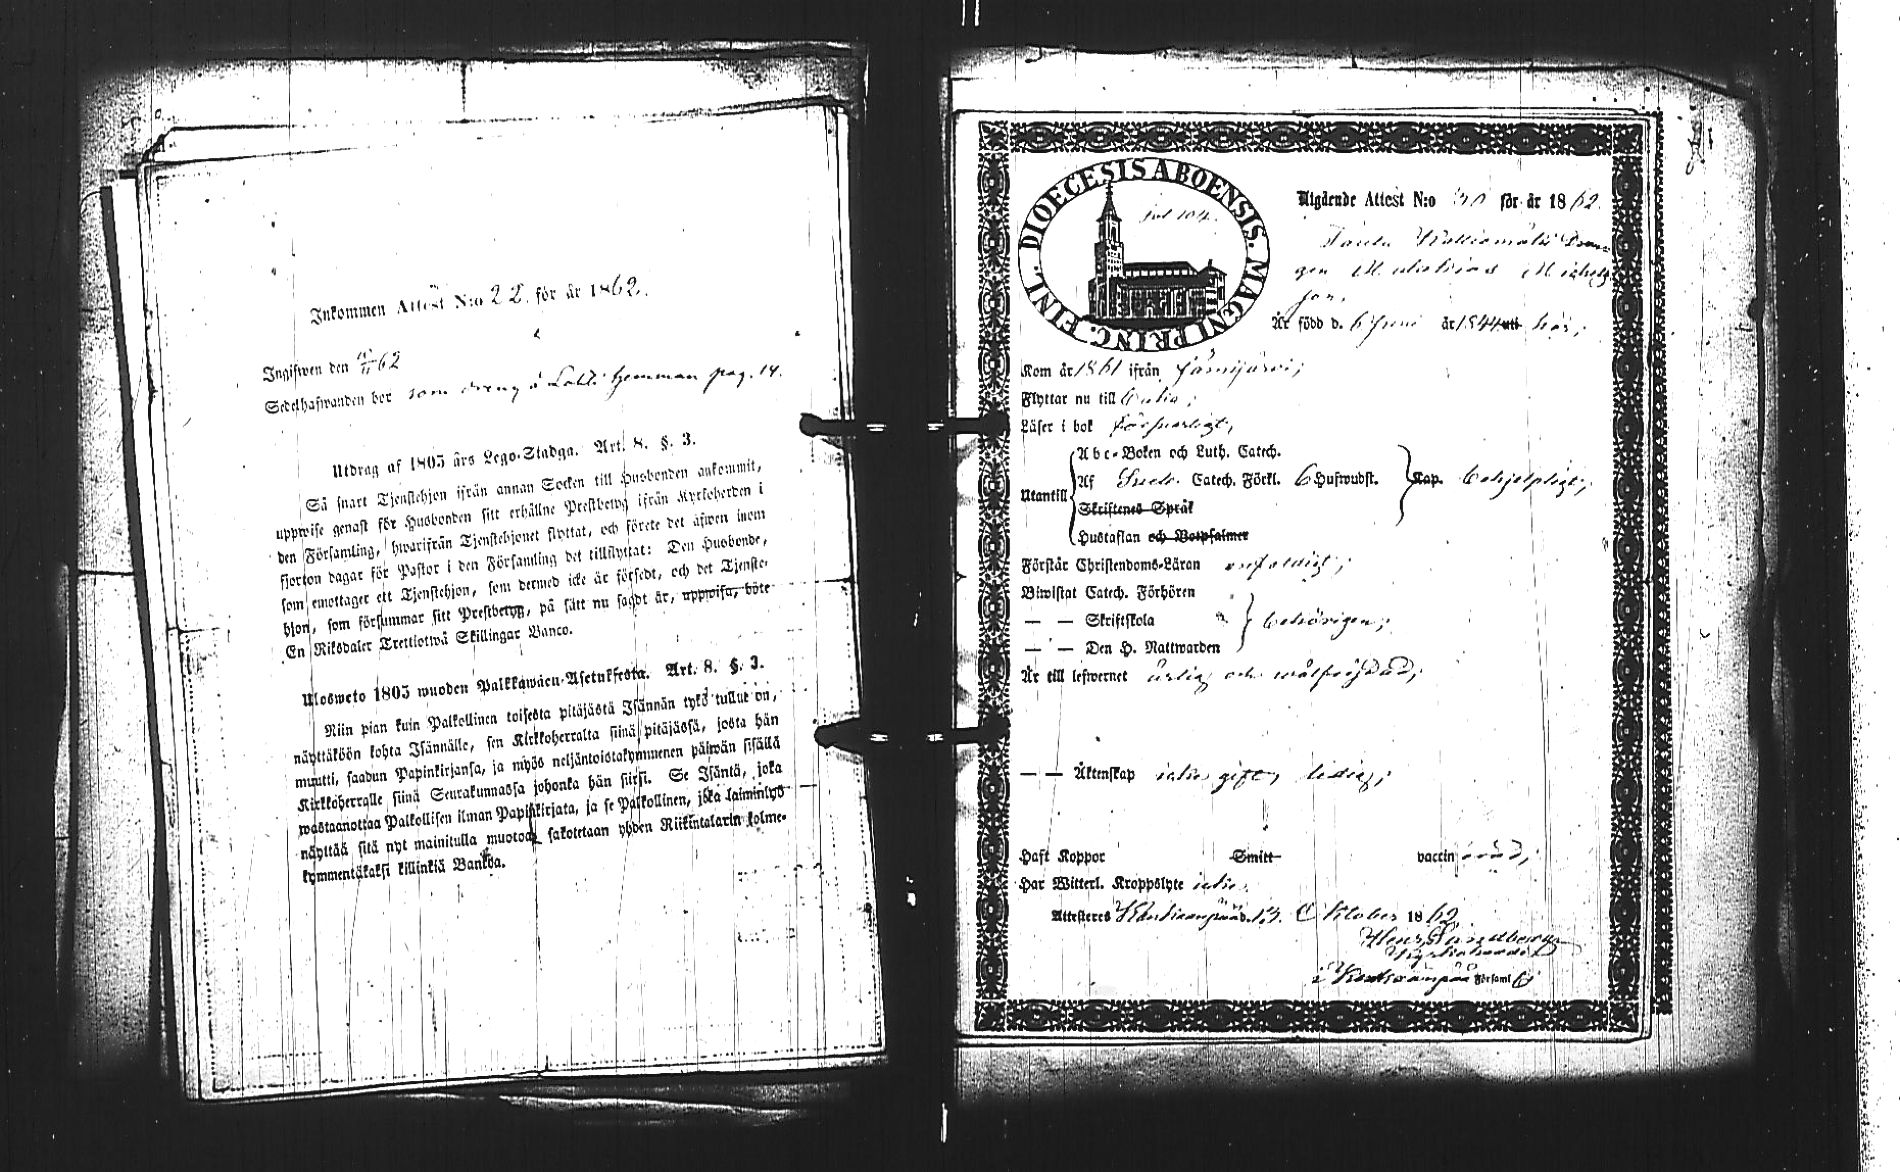 Inkommen Attest N:o 22. för år 1862.
Ingifwen den 11/11 62
Sedelhafwanden bor som dreng å Lahti hemman pag. 14.
Utdrag af 1805 års Lego-Stadga. Art. 8. §. 3.
Så snart Tjenstehjon ifrån annan Socken till Husbonden ankommit,
uppwise genast för Husbonden sitt erhållne Prestbetyg ifrån Kyrkoherden i
den Församling, hwarifrån Tjenstehjonet flyttat, och förete det äfwen inom
fjorton dagar för Pastor i den Församling det tillflyttat: Den Husbonde,
som emottager ett Tjenstehjon, som dermed icke är försedt, och det Tjenste-
hjon, som försummar sitt Prestbetyg, på sätt nu sagdt är, uppwisa, böte
En Riksdaler Trettiotwå Skillingar Banco.
Ulosweto 1805 wuoden Palkkawäen-Asetuksesta. Art. 8. §. 3.
Niin pian kuin Palkollinen toisesta pitäjästä Isännän tykö tullut on,
näyttäköön kohta Isännälle, sen Kirkkoherralta siinä pitäjässä, josta hän
muutti, saadun Papinkirjansa, ja myös neljäntoistakymmenen päiwän sisällä
Kirkkoherralle siinä Seurakunnassa johonka hän siirsi. Se Isäntä, joka
wastaanottaa Palkollisen ilman Papinkirjata, ja se Palkollinen, joka laiminlyö
näyttää sitä nyt mainitulla muotoa, sakotetaan yhden Riikintalarin kolme-
kymmentäkaksi killinkiä Bankoa.
FINL. DIOECESIS ABOENSIS. MAGNI PRINC.
fol 104.
Utgående Attest N:o 30 för år 1862.
Mathias Michels
son.
Är född d. 6 Juni år 1844 utt här;
Kom år 1861 ifrån Jämijärvi;
Flyttar nu till
Läser i bok försvarligt,
Abc-Boken och Luth. Catech.
Utantill Af Sved. Catech. Förkl. 6 Hufwudst. Kap. behjelpligt;
Skriftenes Språk
Hustaflan och Botpsalmer
Förstår Christendoms-Läran enfaldigt;
Biwistat Catech. Förhören
— — Skriftskola behörigen;
— — Den H. Nattwarden
Är till lefwernet ärlig och wälfrejdad;
— — Äktenskap icke gift, ledig;
Haft Koppor Smitt vaccinerad;
Har Witterl. Kroppslyte icke.
Attesteras Kankaanpää d. 13. Oktober 1862
Kyrkoherde
i Kankaanpää Församl